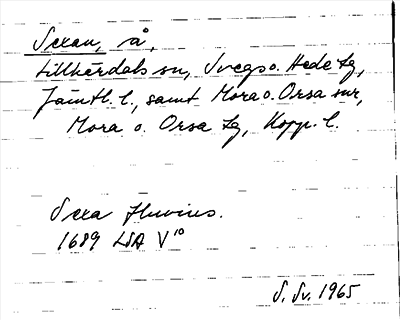 Sexan, å,
Lillhärdals sn, Svegs o. Hede tg,
Jämtl. l., samt Mora o. Orsa snr,
Mora o. Orsa tg, Kopp. l.
Sexa fluvius.
1689 LSA V 10
S. Sv. 1965